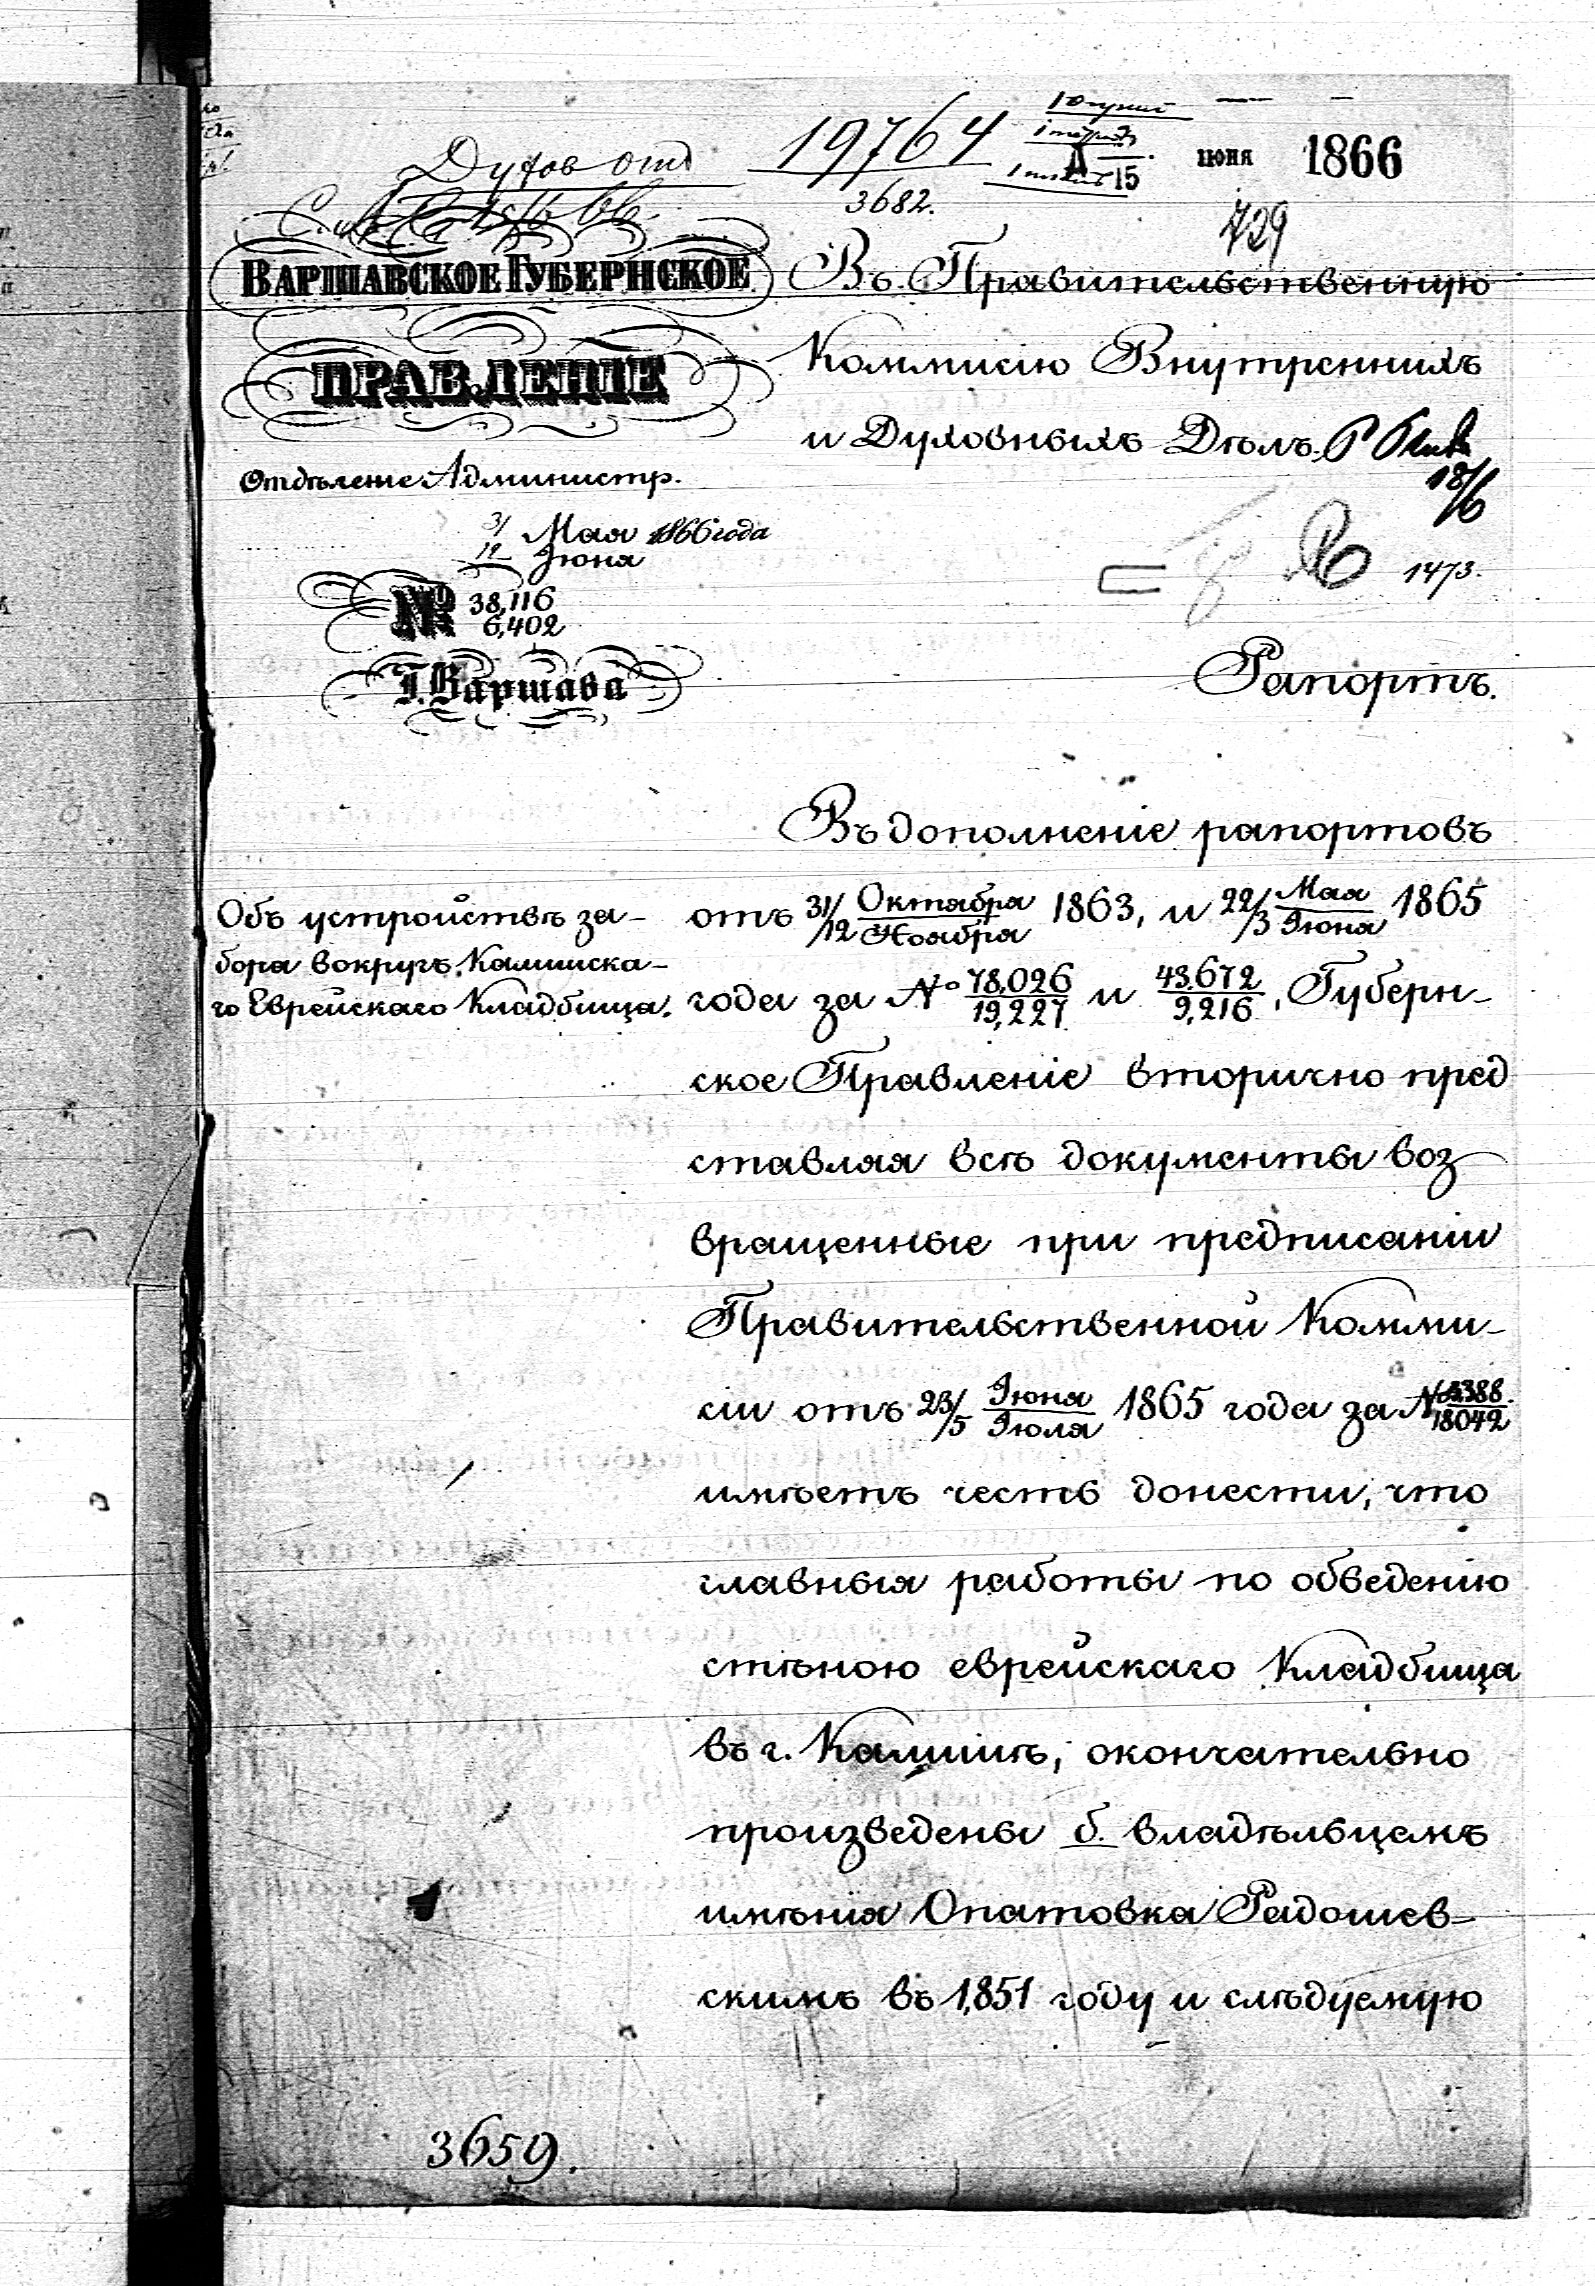 Духов отд
19764
3682.
15
июня
1866
729
ВАРШАВСКОЕ ГУБЕРНСКОЕ
ПРАВЛЕНІЕ
Отдѣленіе Администр.
31/12 Мая/Іюня 1866 года
№ 38,116/6,402
Г. Варшава
Въ Правительственную
Коммисію Внутреннихъ
и Духовныхъ Дѣлъ.
18/6
1473.
Рапортъ.
Объ устройствѣ за-
бора вокругъ Калишска-
го Еврейскаго Кладбища.
Въ дополненіе рапортовъ
отъ 31/12 Октября/Ноября 1863, и 22/3 Мая/Іюня 1865
года за № 78,026/19,227 и 43,672/9,216, Губерн-
ское Правленіе вторично пред
ставляя всѣ документы воз
вращенные при предписаніи
Правительственной Комми-
сіи отъ 23/5 Іюня/Іюля 1865 года за №
18042
имѣетъ честь донести, что
главныя работы по обведенію
стѣною еврейскаго Кладбища
въ г. Калишѣ, окончательно
произведены б. владѣльцемъ
имѣнія Опатовка Радошев-
скимъ въ 1,851 году и слѣдуемую
3659.